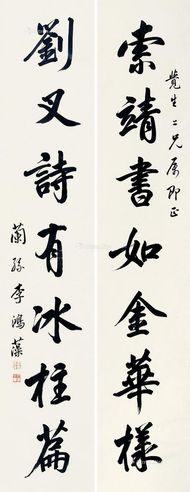 索靖書如金華樣
覺生二兄屬即正
劉叉詩有冰柱篇
蘭孫李鴻藻